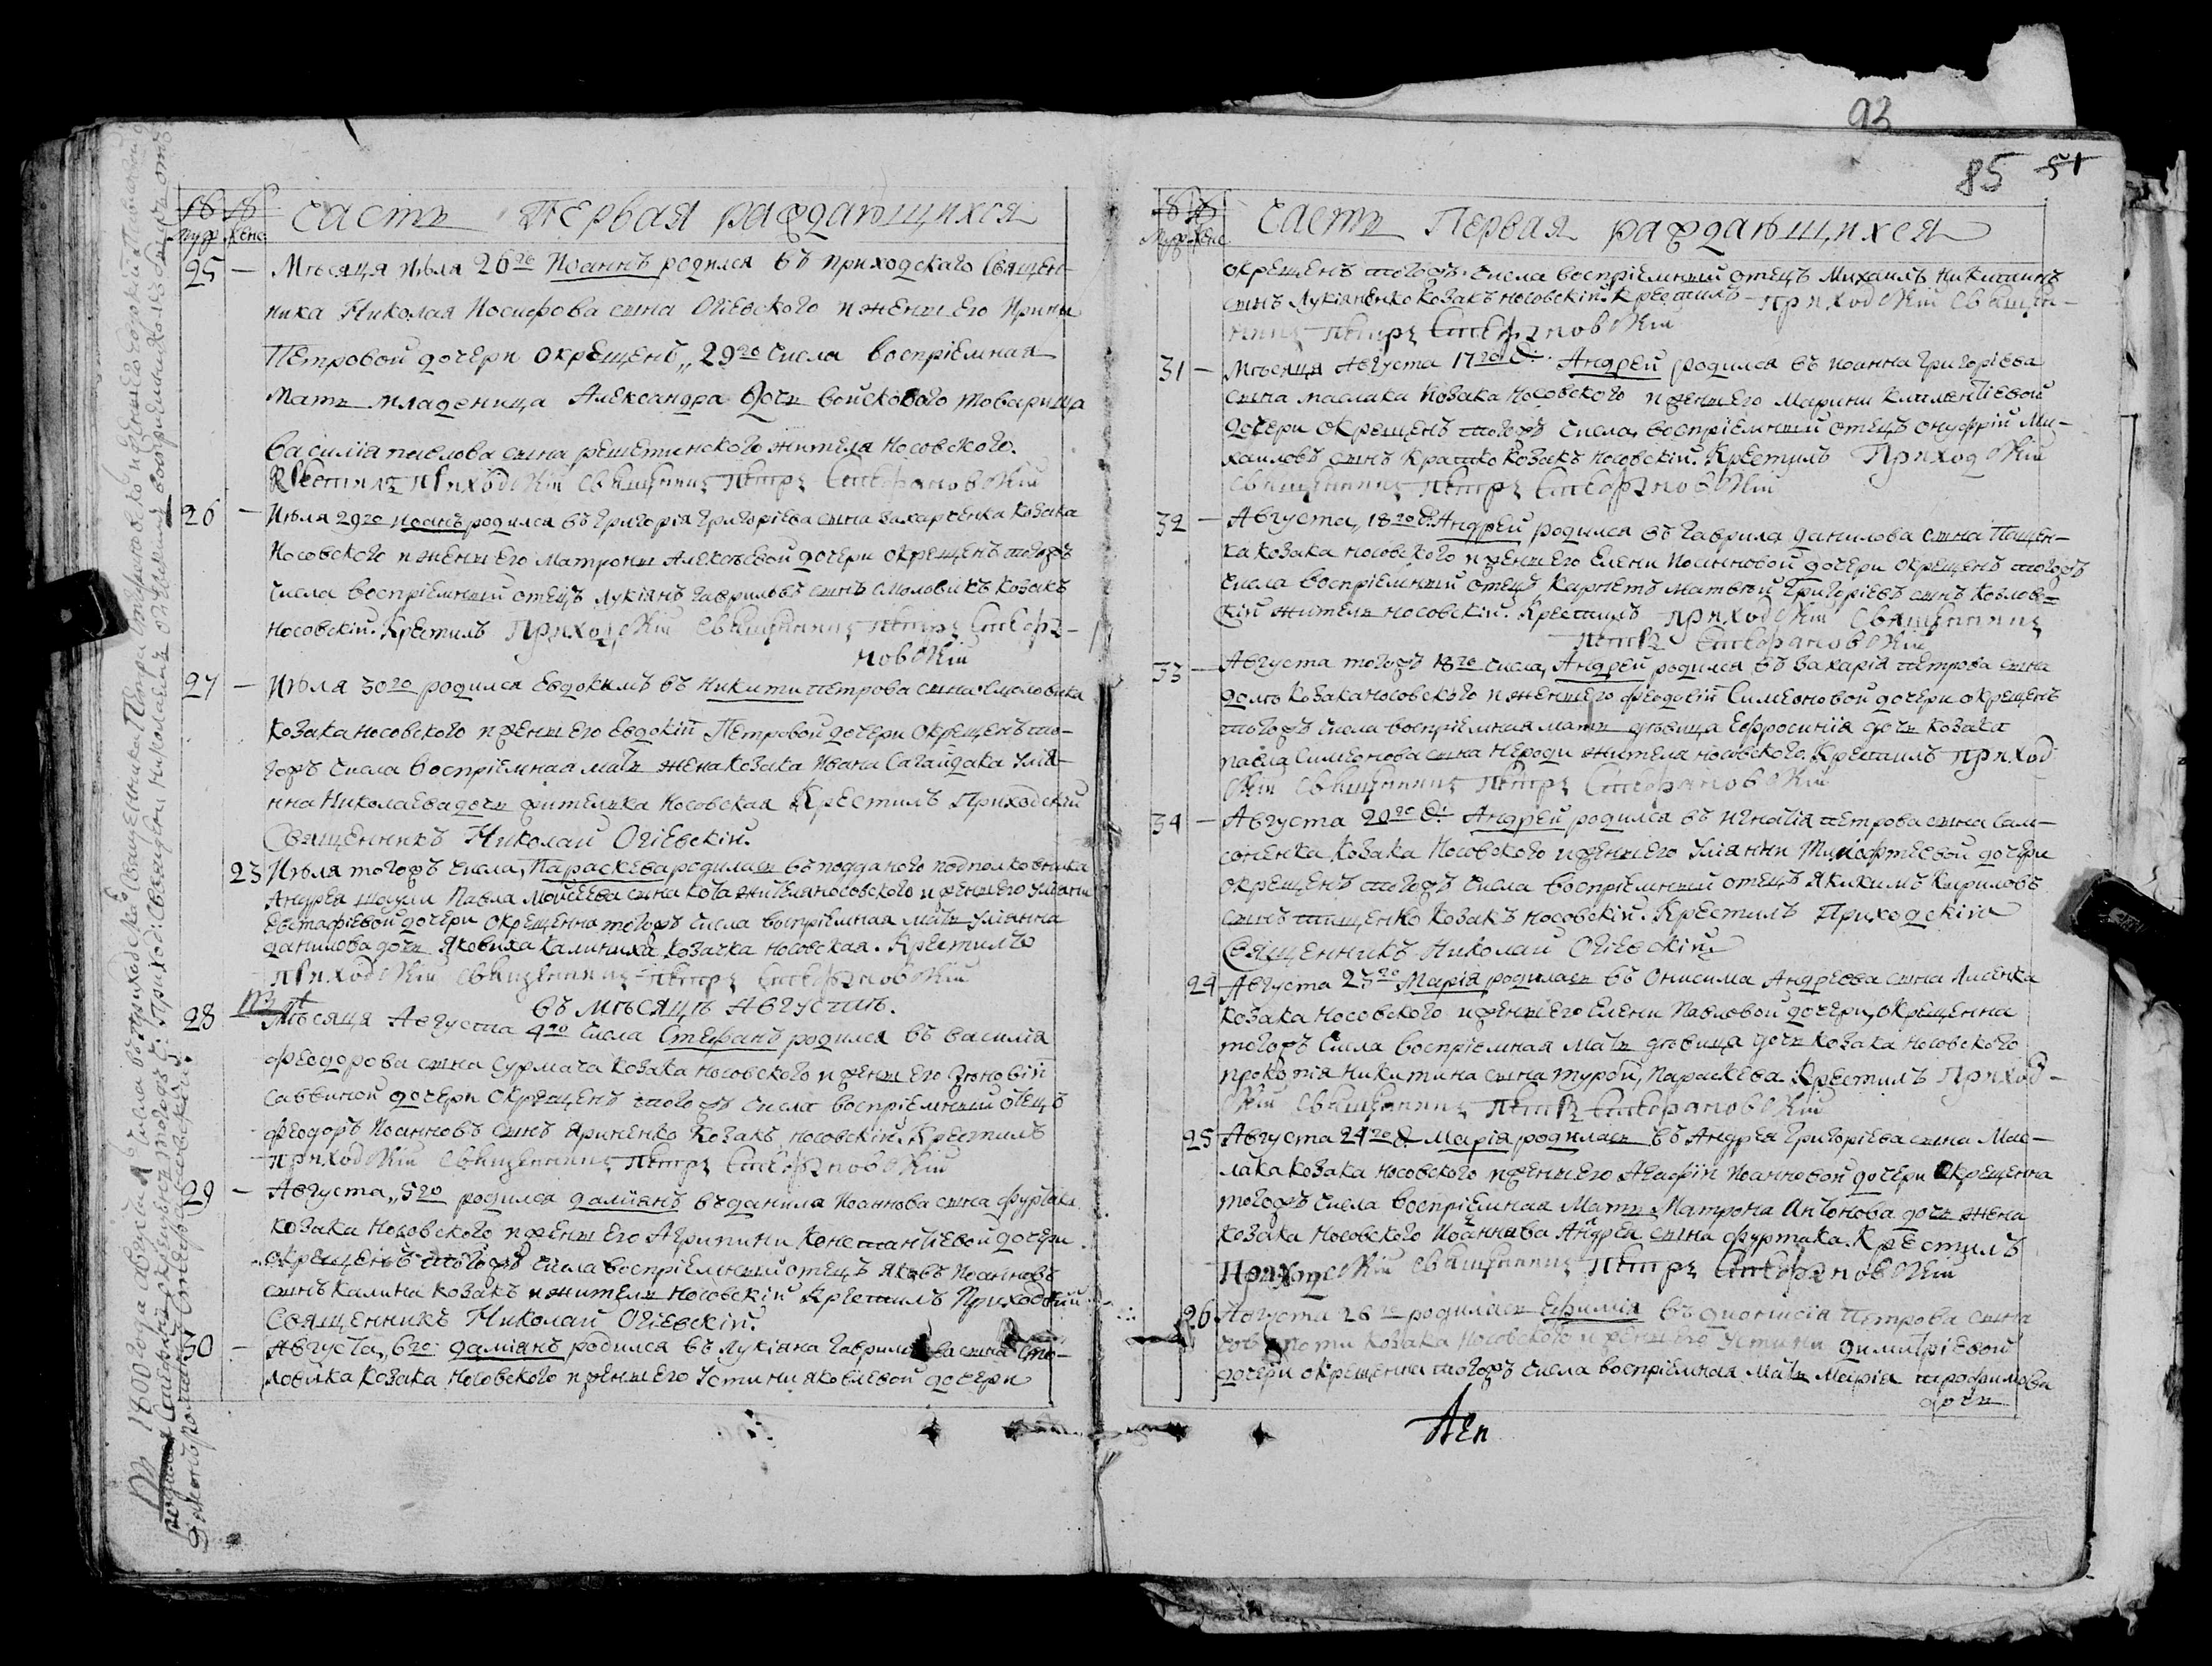 93
85 51
Муж. Женс.
Часть Первая раждающихся
25 — Мѣсяца Июля 26го Иоаннъ родился въ приходского Священ-
ника Николая Иосифова сина Огіевского и жени его Ирини
Петровой дочери окрещенъ „29го числа восприемная
Мать младенца Александра дочь войскового товарища
Василія павлова сина решетинского жителя Носовского.
Крестилъ приходскій священникъ Петръ Стефановскій
26 — Июля 29го Иоанъ родился въ Григорія Григоріева сина Захарченка козака
Носовского и жени его Матрони Алексѣевой дочери окрещенъ тогожъ
числа восприемний отецъ Лукіянъ Гавриловъ синъ Смоловикъ козакъ
Носовскій. Крестилъ Приходскій священникъ Петръ Стефа-
новскій
27 — Июля 30го родился Евдокимъ въ Никити петрова сина Смоловика
козака носовского и жени его Евдокіи Петровой дочери окрещенъ то-
гожъ числа восприемная мать жена козака Ивана Сагайдака Улія-
нна Николаева дочь жителка Носовская Крестилъ Приходскій
Священникъ Николай Огіевскій.
23 Июля тогожъ числа, Параскева родилась въ подданого подполковника
Андрея Павла Мойсеева сина Кота жителя носовского и жени его Уліяни
Евстафіевой дочери окрещенна тогожъ числа восприемная мать Уліянна
данилова дочь Яковиха Калиниха козачка носовская. Крестилъ
приходскій священникъ Петръ Стефановскій
въ мѣсяцѣ Августѣ.
28 — Мѣсяца Августа 4го числа Стефанъ родился въ Василія
Феодорова сина Сурмача козака носовского и жени его Зѣновіи
Саввиной дочери окрещенъ тогожъ числа восприемний отецъ
Феодоръ Иоанновъ синъ Яриненко козакъ носовскій. Крестилъ
приходскій священникъ Петръ Стефановскій
29 — Августа „5го родился даміянъ въ данила Иоаннова сина Фуртака
козака Носовского и жени его Агрипини Константіевой дочери
окрещенъ тогожъ числа восприемний отецъ Яковъ Иоанновъ
синъ Калина козакъ и житель Носовскій Крестилъ Приходскій
Священникъ Николай Огіевскій.
30 — Августа, 6го: даміянъ родился въ Лукіяна Гаврилова сина Смо-
ловика козака Носовского и жени его Устини яковлевой дочери
Муж. Женс.
Часть Первая раждающихся
окрещенъ тогожъ числа восприемний отецъ Михаилъ Никитинъ
синъ Лукіяненко козакъ носовскій. Крестилъ приходскій священ-
никъ Петръ Стефановскій
31 — Мѣсяца Августа 17го д. Андрей родился въ Иоанна Григоріева
сина маслака козака Носовского и жени его Марини Климентіевой
дочери окрещенъ тогожъ числа, восприемний отецъ онуфрій Ми-
хаиловъ синъ Крашко козакъ Носовскій. Крестилъ Приходскій
священникъ Петръ Стефановскій
32 — Августа, 18го д. Андрей родился въ Гаврила данилова сина Пащен-
ка козака носовского и жени его Елени Иоанновой дочери окрещенъ тогожъ
числа восприемний отецъ, карнетъ матвѣй Григоріевъ синъ Козлов-
скій житель носовскій. Крестилъ приходскій Священникъ
Петръ Стефановскій
33 — Августа тогожъ 18го числа, Андрей родился въ Захарія петрова сина
козака носовского и жени его Феодосіи Симеоновой дочери окрещенъ
тогожъ числа восприемная мать дѣвица Ефросинія дочь козака
павла Симеонова сина Нероди жителя носовского. Крестилъ приход-
скій священникъ Петръ Стефановскій
34 — Августа 20го д. Андрей родился въ Игнатія петрова сина Сам-
соненка козака Носовского и жени его Уліянни Тимофтеевой дочери
окрещенъ тогожъ числа восприемний отецъ Якимъ Кириловъ
синъ Тащенко козакъ носовскій. Крестилъ Приходскій
Священникъ Николай Огіевскій.
24 Августа 23го Марія родилась въ Онисима Андреева сина Лисенка
козака носовского и жени его Елени Павловой дочери, окрещенна
тогожъ числа восприемная мать дѣвица дочь козака носовского
прокопія Никитина сина турой, Параскева Крестилъ Приход-
скій священникъ Петръ Стефановскій
25 Августа 24го д. Марія родилась въ Андрея Григоріева сина Мас-
лака козака носовского и жени его Агафіи Иоанновой дочери окрещенна
тогожъ числа восприемная Мать Матрона Антонова дочь жена
козака Носовского Иоаннова Андрея сина фуртака. Крестилъ
Приходскій священникъ Петръ Стефановскій
26 Августа 26го родилась Ефимія въ дионисія Петрова сина
козака Носовского и жени его Устини димитріевой
дочери окрещенна тогожъ числа восприемная мать Марія трофимова
дочь